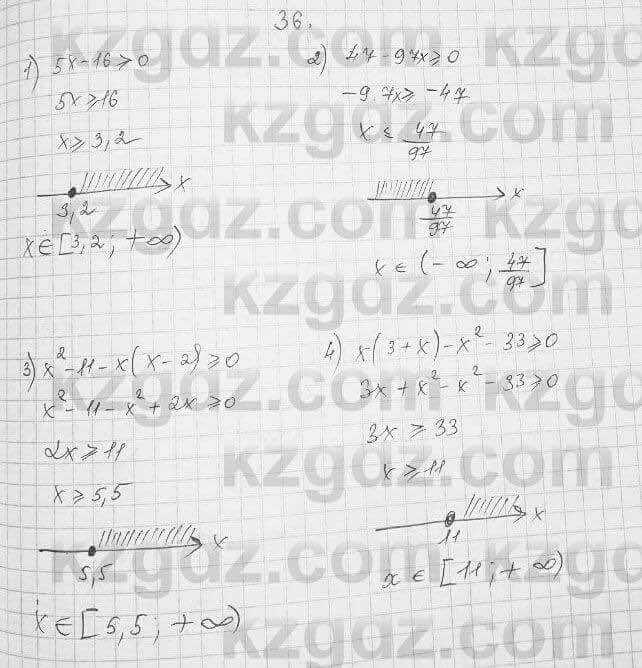 36.
1) 5x-16≥0
5x≥16
x≥3,2
x
3,2
x∈[3,2; +∞)
2) 47-97x≥0
-97x≥-47
x≤47/97
x
47/97
x∈(-∞; 47/97]
3) x²-11-x(x-2)≥0
x²-11-x²+2x≥0
2x≥11
x≥5,5
x
5,5
x∈[5,5; +∞)
4) x(3+x)-x²-33≥0
3x+x²-x²-33≥0
3x≥33
x≥11
x
11
x∈[11; +∞)
kzgdz.com
kzgdz.com
kzgdz.com
kzgdz.com
kzgdz.com
kzgdz.com
kzgdz.com